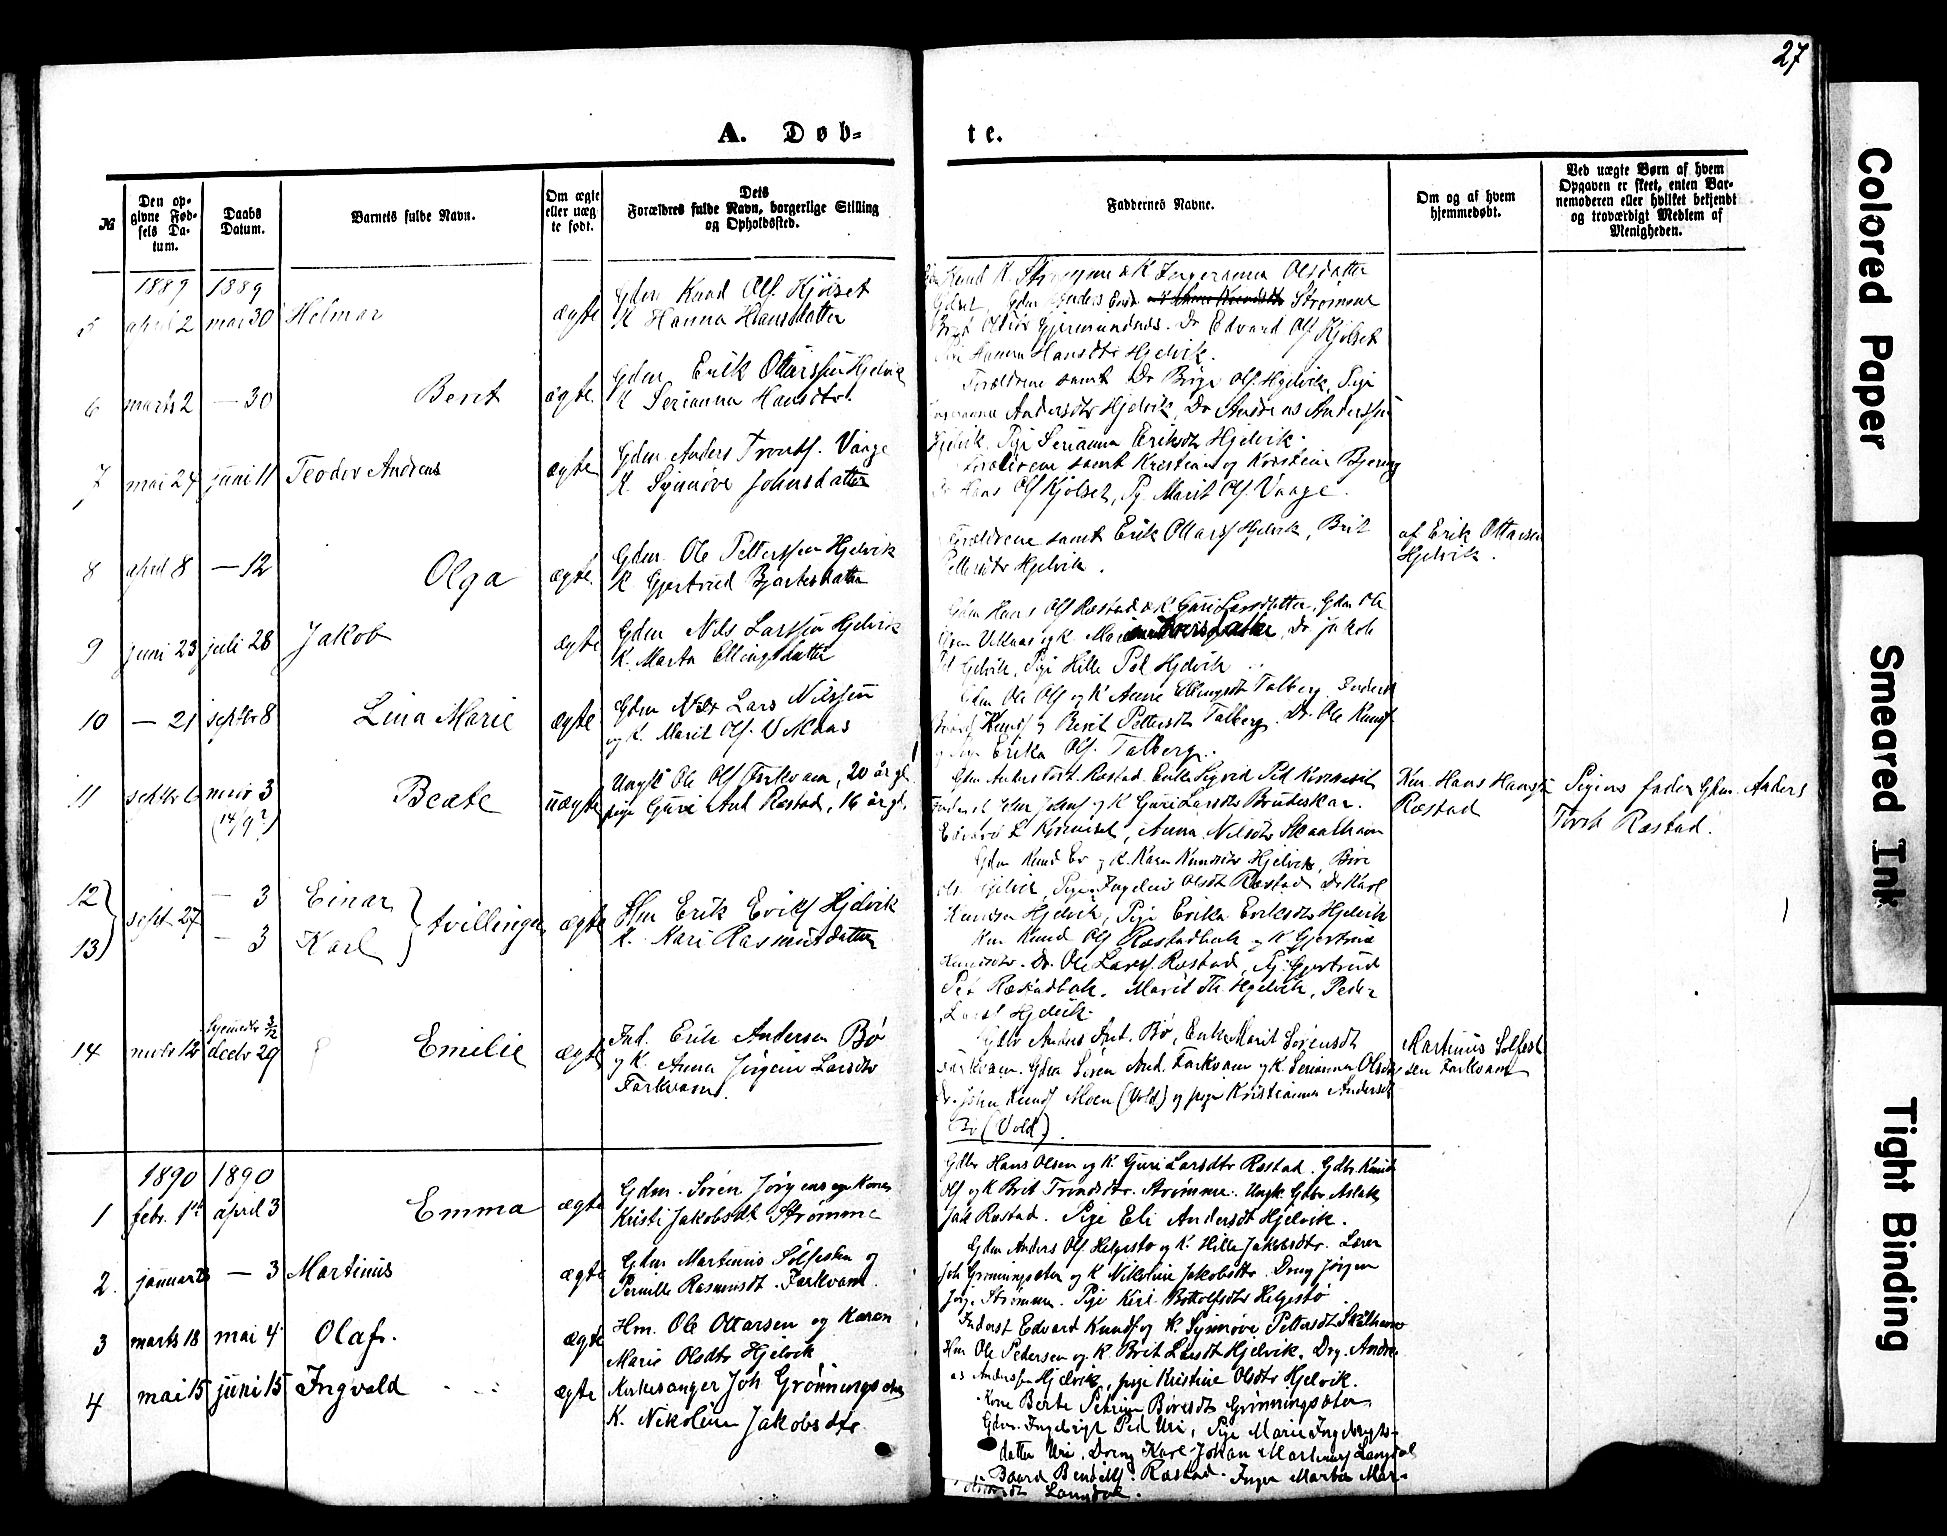 27
A. Døb=
te.
№
Den op-
givne Fød-
sels Da-
tum.
Daabs
Datum.
Barnets fulde Navn.
Om ægte
eller uæg
te født.
Dets
Forældres fulde Navn, borgerlige Stilling
og Opholdssted.
Faddernes Navne.
Om og af hvem
hjemmedøbt.
Ved uægte Børn af hvem
Opgaven er skeet, enten Bar-
nemoderen eller hvilket bekjendt
og troværdigt Medlem af
Menigheden.
1889 1889
5 april 2 mai 30 Helmer ægte
Gdm Knud Olf. Hjölset
K Hanna Hansdatter
Knud K. Strømme & K Ingerianna Olsdatter
Strömme
Edvard Olf. Kjölset
Hanna Hansdtr Hjelvik.
6 marts 2 — 30 Bent ægte.
Gdm Erik Ottarssen Hjelvik
K Serianna Hansdtr.
Forældrene samt Dr Brige Olf. Hjelvik, Pige
Andersdtr Hjelvik, Dr Andreas Anderssen
Hjelvik. Pige Serianna Eriksdtr Hjelvik.
7 mai 24 juni 11 Teodor Andreas ægte
Gdm Anders Trondf. Vaage
K Synnöve Johnsdatter
Forældrene samt Kristian og Kristine Bjering
Dr Hans Olf Kjölset, Pg. Marit Olf. Vaage.
8 april 8 — 12 Olga ægte.
Gdm Ole Petterssen Hjelvik
K Gjertrud Bjartesdatter
Forældrene samt Erik Ottarsf Hjelvik, Brit
Pettersdtr Hjelvik.
af Erik Ottarsen
Hjelvik.
9 juni 23 juli 28 Jakob ægte
Gdm Nils Larssen Hjelvik
K. Marta Ellingsdatter
Gdm Hans Olf Rœstad & K. Guri Larsdatter, Gdm Ole
Dr Jakob
Hjelvik, Pige Hilla Pet Hjelvik
10 — 21 septbr 8 Lina Marie ægte
Gdm Lars Nilssen
og K. Marit Olf.
Gdm Ole Olf og K Anne Ellingsdt Talberg. Inderst
Knudf og Berit Pettersdt Talberg. Dr. Ole Knudf
Erika Olf. Talberg.
11 septbr 6 novbr 3 Beate uægte
(14/9?)
Ungk Ole Olf Farkvam, 20 år gl.
pige Guri And Rœstad, 16 år gl.
Gdm Anders Torst. Rœstad. Enke Sigrid Ped
og K Guri Larsdtr Brudeskar.
Anna Nilsdtr Skaalhavn
Km. Hans Hansf
Rœstad
Pigens fader Gdm. Anders
Torst Rœstad.
12 sept. 27 — 3 Einar tvillinger ægte
13 — 3 Karl
Hm Erik Erikf Hjelvik
K. Kari Rasmusdatter
Gdm Knud Er og K. Karen Knudsdtr Hjelvik,
Hjelvik, Pige Ingeleiv Olsdt Rœstad Dr Karl
Knudsen Hjelvik, Pige Erika Eriksdtr Hjelvik
Hm Knud Olf Rœstadbak og K Gjertrud
Knudsdtr. Dr. Ole Larsf. Rœstad, Pg. Gjertrud
Ped Rœstadbak. Marit Th. Hjelvik, Peder
Larsf Hjelvik.
14 novbr 12 hjemmedbt 3/12
decbr 29 Emilie ægte
Ind. Erik Andersen Bö
og K. Anna Jörgine Larsdtr
Farkvam.
Gdbr Anders And. Bö, Enke Marit Sörensdt
Farkvam. Gdm Sören And. Farkvam og K. Serianna Olsdtr
Dr. John Knudf Moen (Vold) og pige Kristianna Andersdt
Bö (Vold).
Martinus Solfest
sen Farkvam
1890 1890
1 febr. 1st april 3 Emma ægte
Gdm. Sören Jörgens og Kone
Kristi Jakobsdt Strömme
Gdbr Hans Olsen og K. Guri Larsdtr Rœstad. Gdbr. Knud
Olf og K Brit Trondsdtr. Strömme. Ungk. Gdbr. Aslak
Jak Rœstad. Pige Eli Andersdt Hjelvik.
2. januar 23 — 3 Martinus ægte
Gdm Martinus Solfestsen og
Pernille Rasmusdt. Farkvam.
Gdm Anders Olf. Helgestø og K. Hilla Jakobsdtr. Lærer
Joh Grönningsæter og K Nikoline Jakobsdtr. Dreng Jörgen
Jörg. Strömme. Pige Botolfsdtr Helgestø
3 marts 18 mai 4 Olaf. ægte
Hm. Ole Ottarsen og Karen
Marie Olsdtr Hjelvik
Inderst Edvard Knudf og K. Synnöve Pettersdt Skålhavn
Hm Ole Pedersen og K. Brit Larsdt Hjelvik. Drg. Andre
as Anderssen Hjelvik, pige Kristine Olsdtr Hjelvik.
4 mai 15 juni 15 Ingvald ægte
Kirkesanger Joh Grönningsæter
K. Nikoline Jakobsdtr.
Kone Berte Petrine Böresdt Grönningsæter
Gdm. Ingebrigt Ped Uri, Pige Marie Ingebrigts-
datter Uri. Dreng Karl Johan Martinusf Langdal
Baard Bendikf. Rœstad. Inger Martha Mar-
Langdal.
Colored Paper
Smeared Ink
Tight Binding